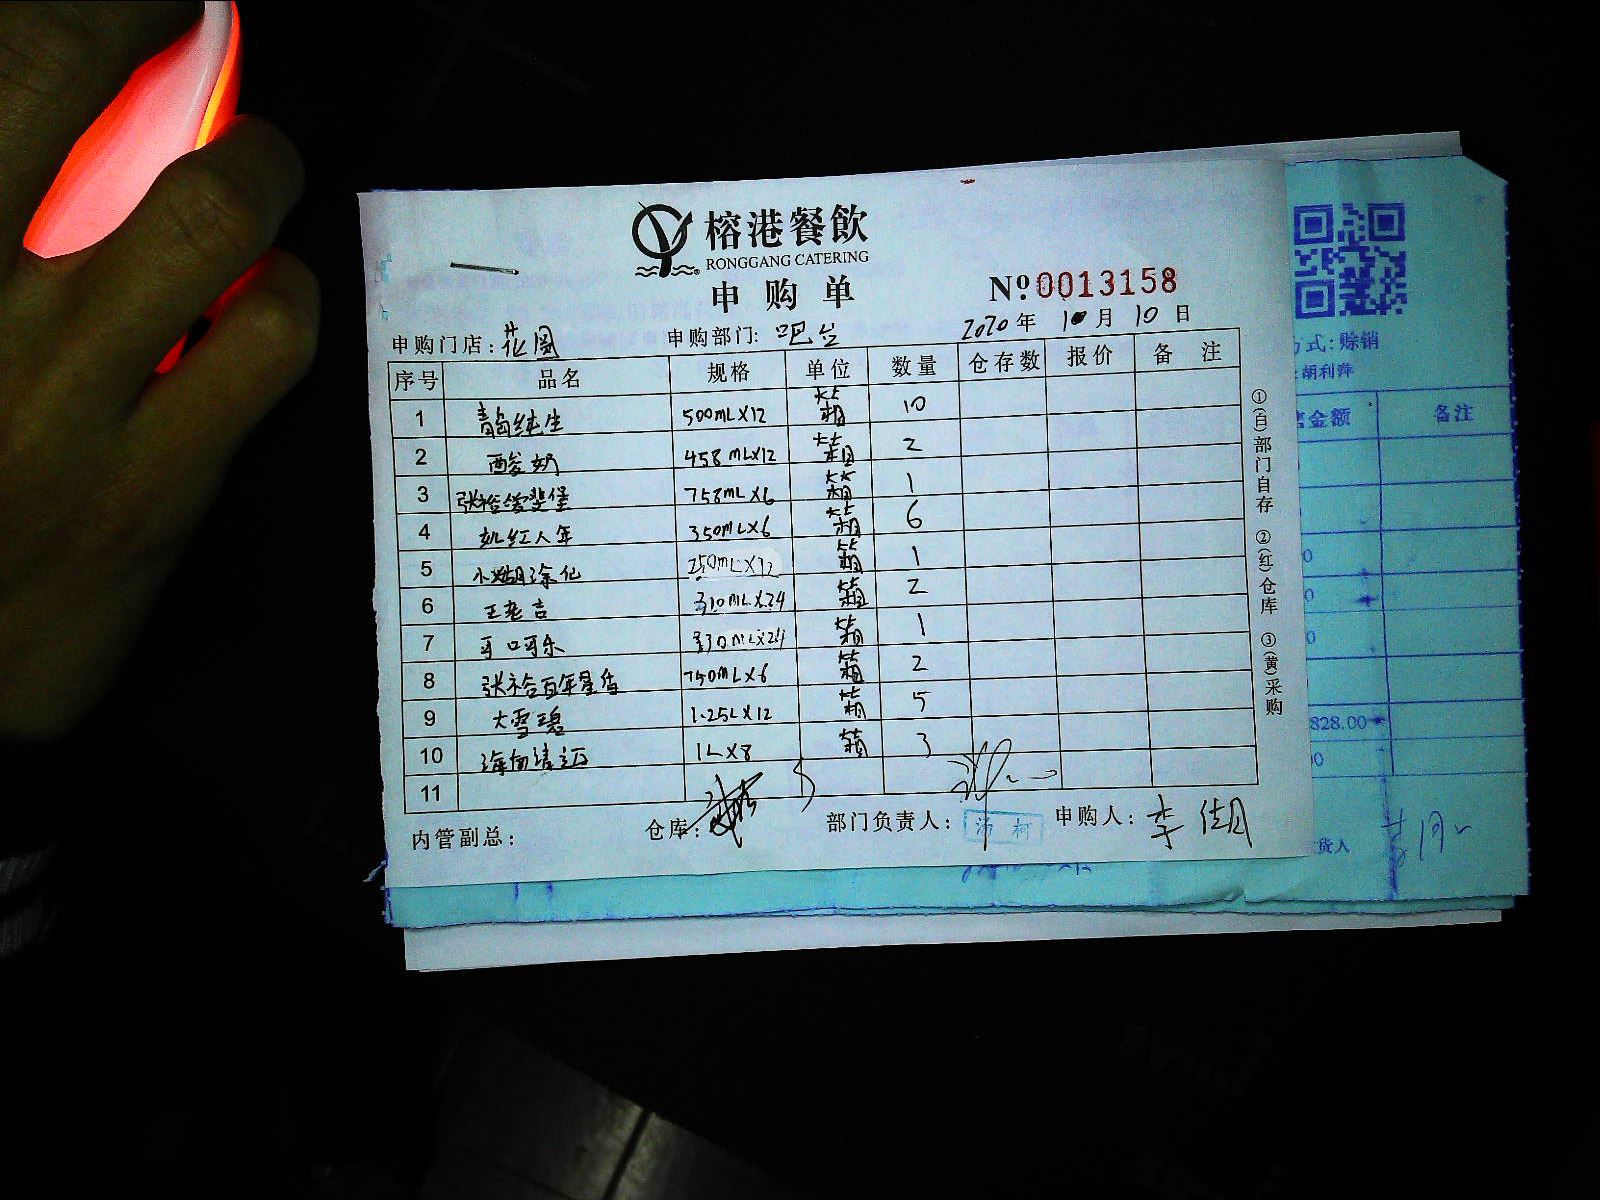 榕港餐飲
RONGGANG CATERING
申购单
Nº 0013158
申购门店：花园 申购部门：吧台 2020年 10月 10日
序号 品名 规格 单位 数量 仓存数 报价 备注
1 青岛纯生 500mL×12 箱 10
2 酸奶 458mL×12 箱 2
3 张裕爱斐堡 758mL×6 箱 1
4 350mL×6 箱 6
5 小糊涂仙 250mL×12 箱 1
6 王老吉 310mL×24 箱 2
7 可口可乐 330mL×24 箱 1
8 张裕百年 750mL×6 箱 2
9 大雪碧 1.25L×12 箱 5
10 1L×8 箱 3
11
内管副总： 仓库： 部门负责人： 汤柯 申购人：李
①(白)部门自存 ②(红)仓库 ③(黄)采购
方式：赊销
胡利萍
金额 备注
828.00
货人